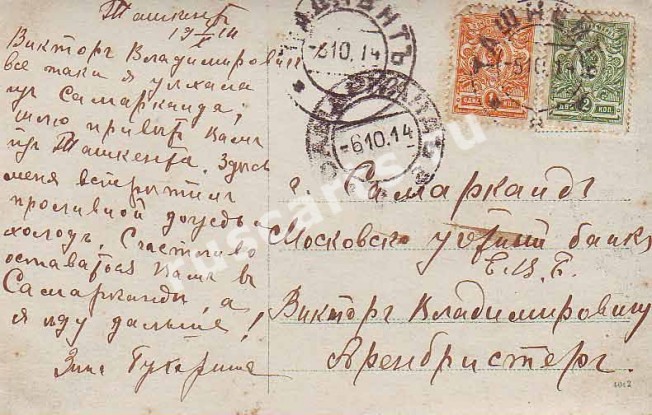 Ташкентъ
19 5/X 14
Викторъ Владимировичъ
все таки я уѣхала
изъ Самарканда;
шлю привѣтъ Вамъ
изъ Ташкента. Здѣсь
меня встрѣтилъ
проливной дождь
холодъ. Счастливо
оставаться Вамъ въ
Самаркандѣ, а
я ѣду дальше!
Зина
ТАШКЕНТЪ
-6.10.14
САМАРКАНДЪ
-6.10.14
ТАШКЕНТЪ
ОДНА КОП.
ДВѢ КОП.
г. Самаркандъ
Московско учетный банкъ
Е.В.Б.
Виктору Владимировичу
Аренбристеръ.
russarts.ru